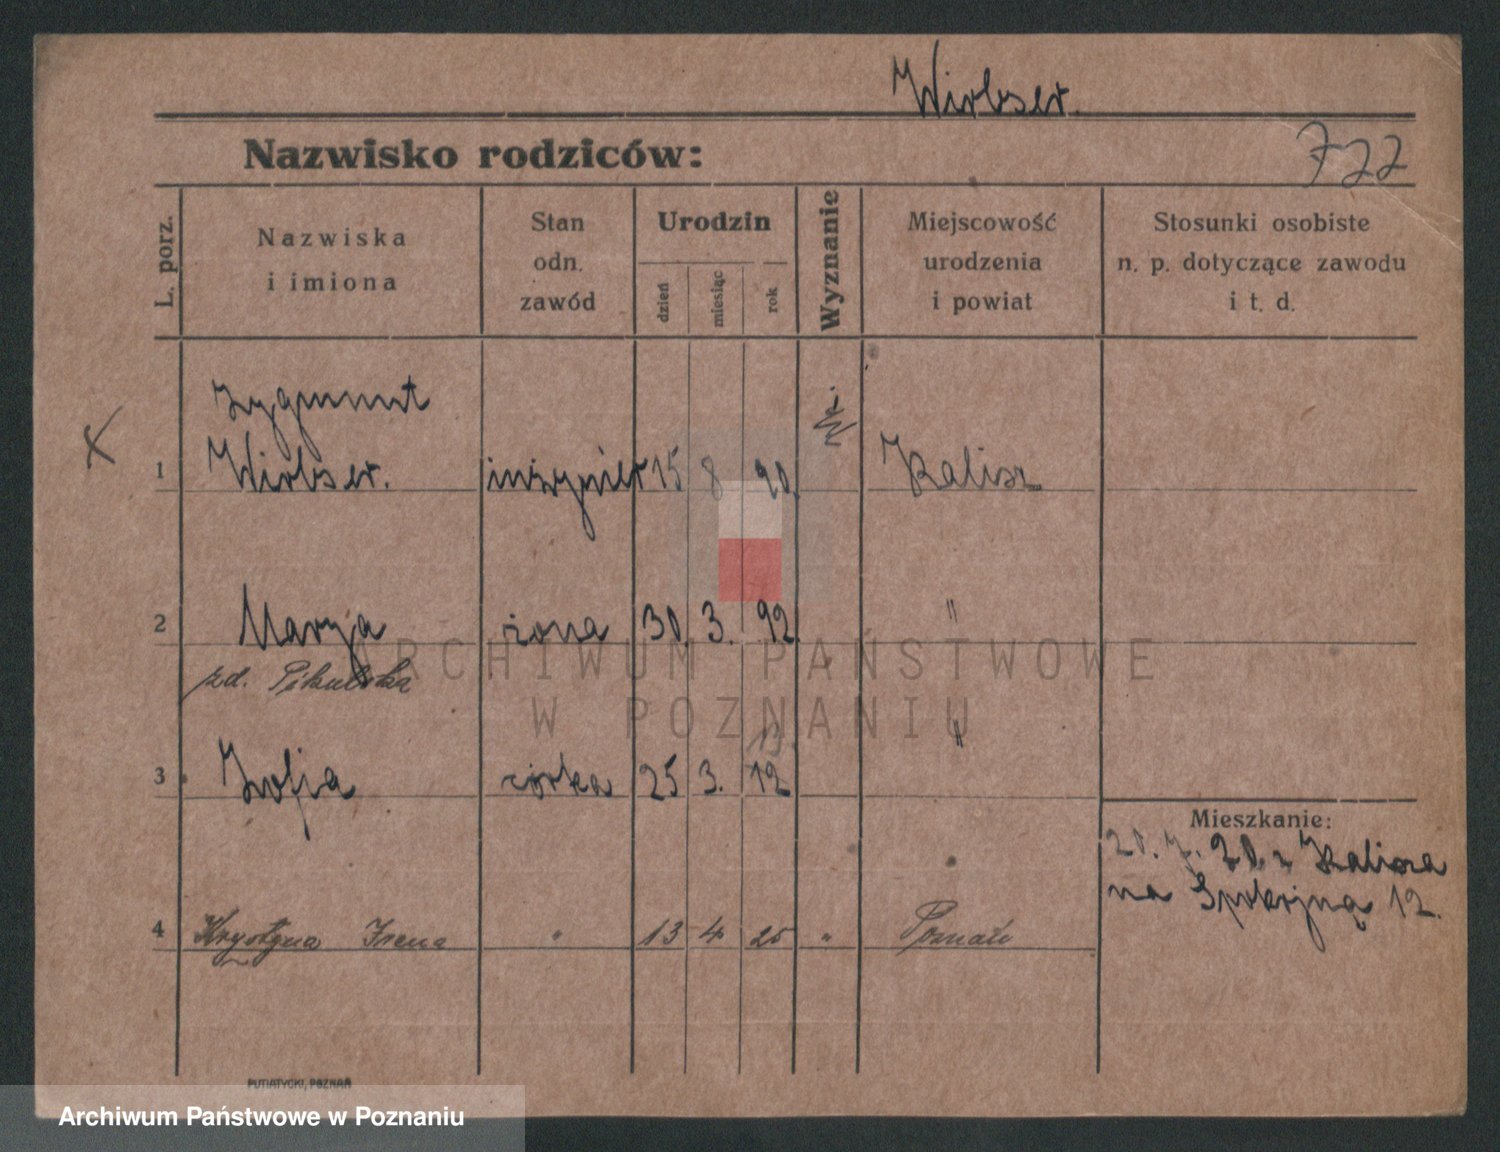 Wirbser.
Nazwisko rodziców:
722
L. porz.
Nazwiska
i imiona
Stan
odn.
zawód
Urodzin
dzień
miesiąc
rok
Wyznanie
Miejscowość
urodzenia
i powiat
Stosunki osobiste
n. p. dotyczące zawodu
i t. d.
x
Zygmunt
1 Wirbser. inżynier 15 8 90. Kalisz
2 Marya żona 30. 3. 92. "
zd. Pikulska
ARCHIWUM PAŃSTWOWE
W POZNANIU
13.
3 Zofia córka 25 3. 12 "
Mieszkanie:
20. 7. 20. z Kalisza
na Spokojną 12.
4 Krystyna Irena " 13 4 25 " Poznań
PUTIATYCKI, POZNAŃ
Archiwum Państwowe w Poznaniu